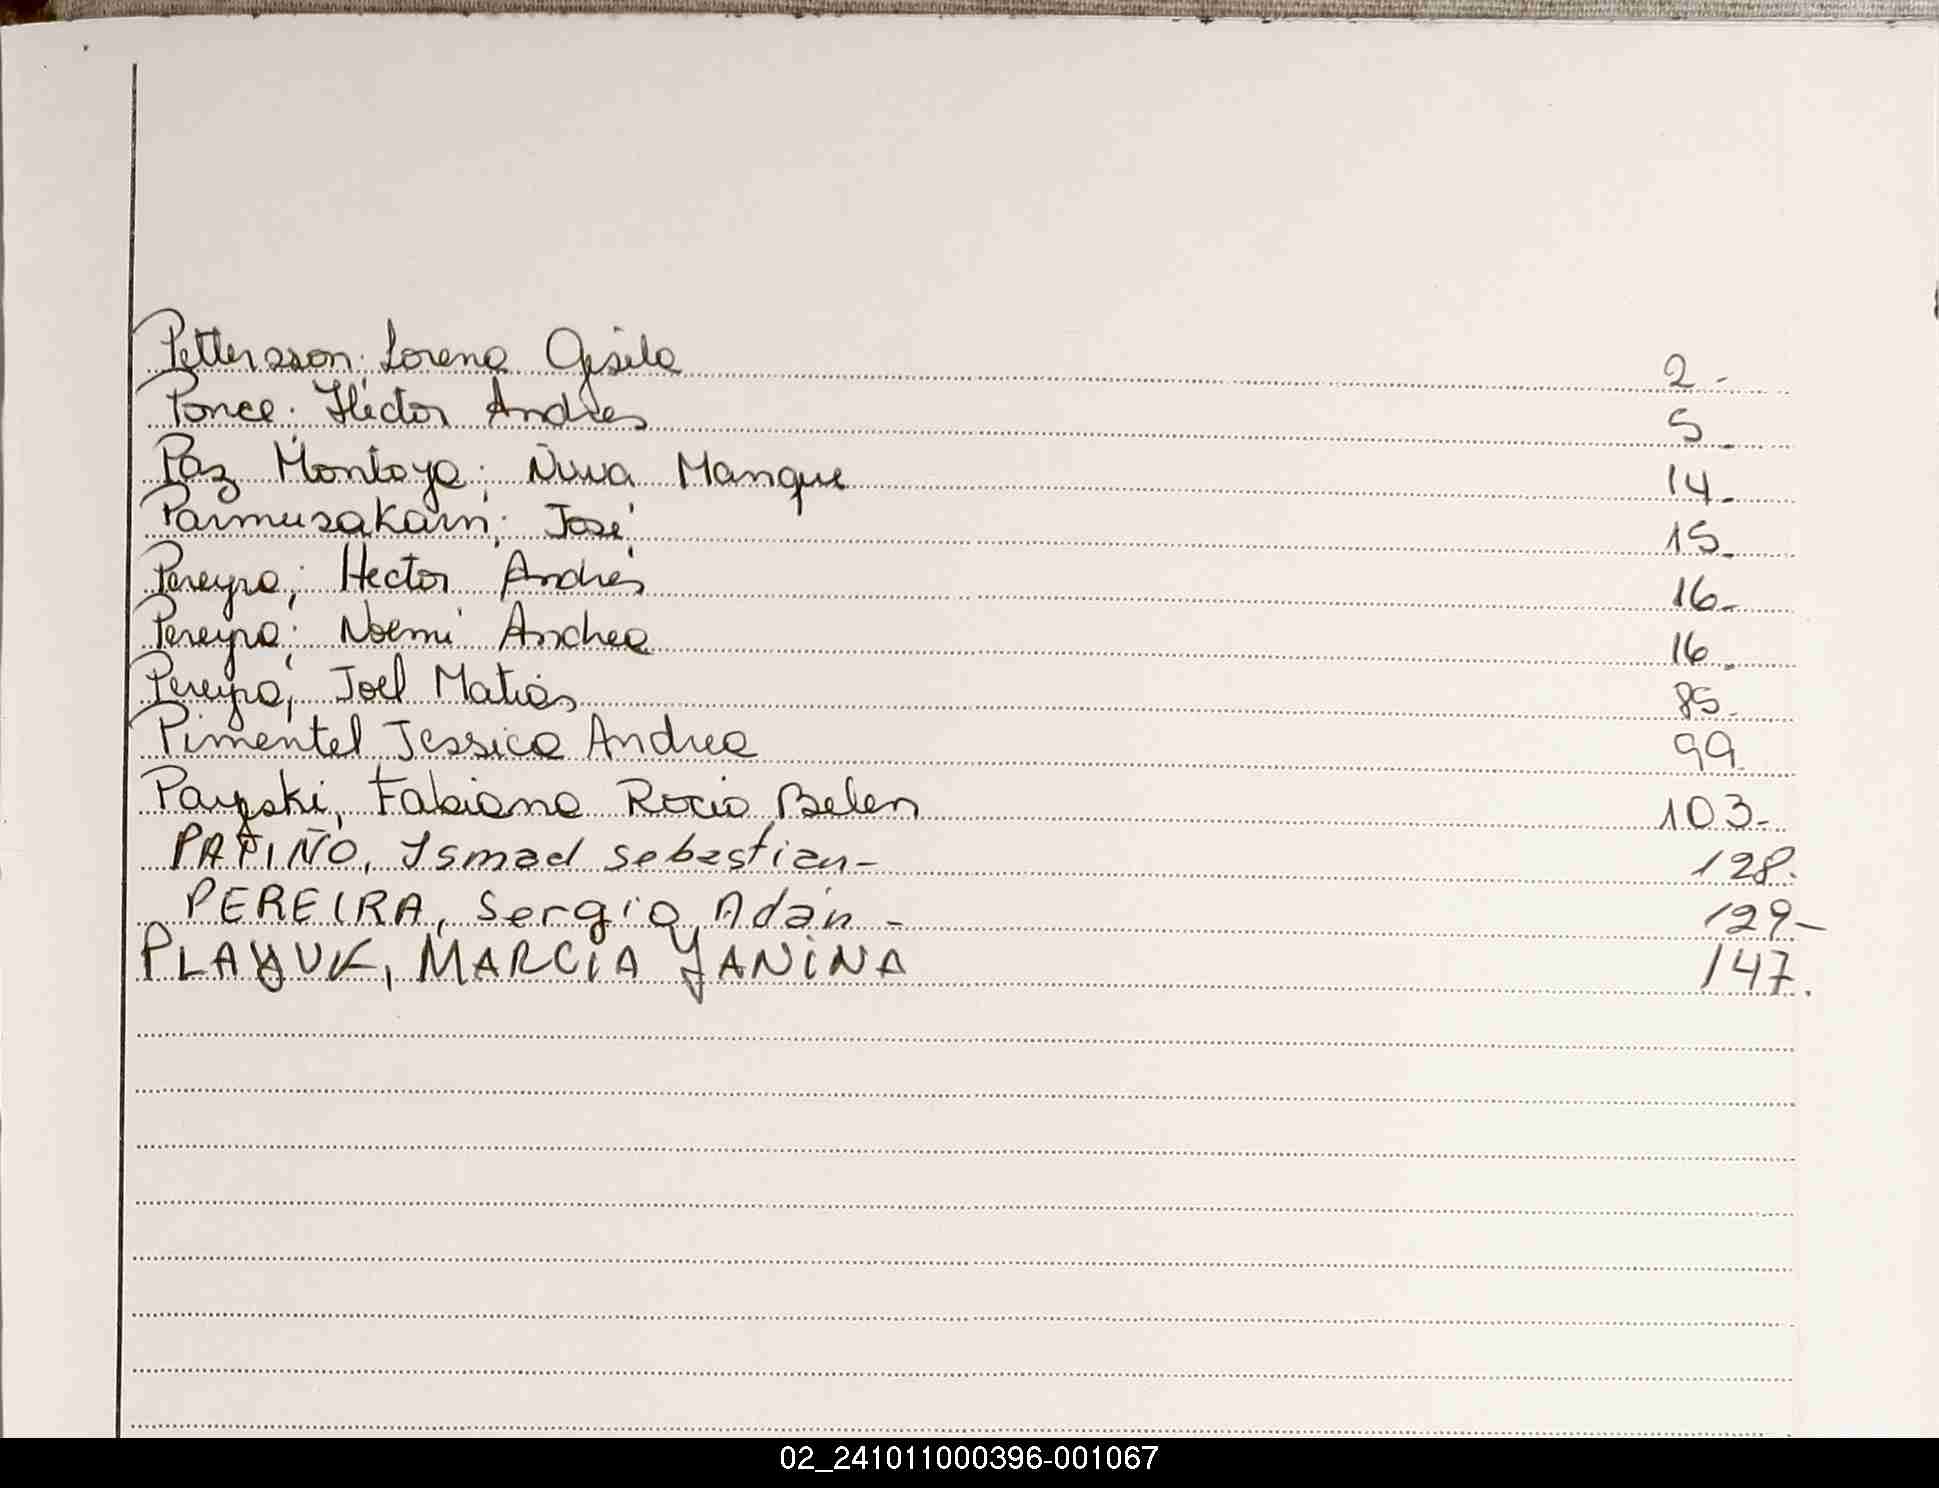 Pettersson. Lorena Gisela 2-
Ponce. Héctor Andres 5-
Paz Montoya; Manque 14-
Parmusakarn; José 15-
Pereyra; Hector Andrés 16-
Pereyra; Noemi Andrea 16-
Pereyra; Joel Matias 85-
Pimentel Jessica Andrea 99
Fabiana Rocio Belen 103-
PATIÑO, Ismael Sebastian- 128.
PEREIRA, Sergio Adán - 129-
PLAYUK, MARCIA YANINA 147.
02_241011000396-001067